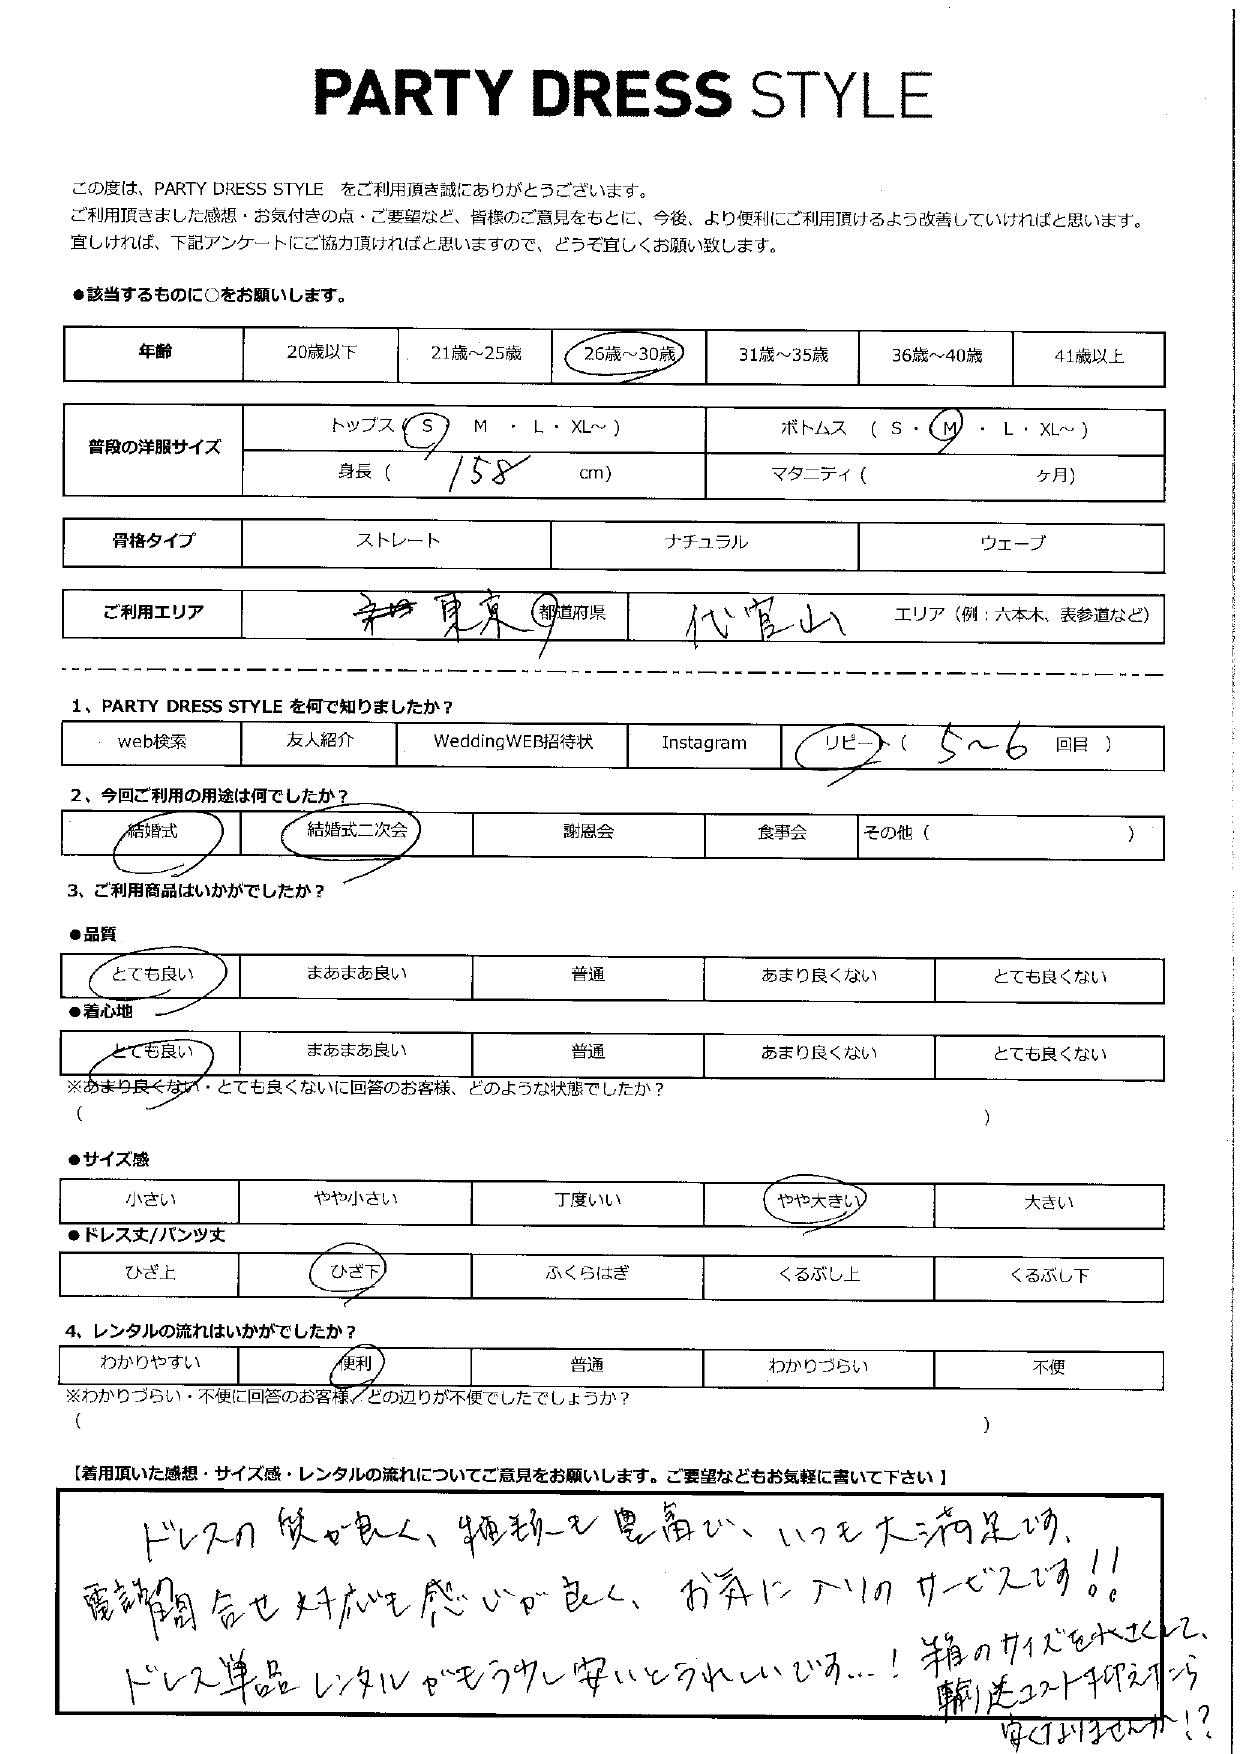 PARTY DRESS STYLE
この度は、PARTY DRESS STYLE をご利用頂き誠にありがとうございます。
ご利用頂きました感想・お気付きの点・ご要望など、皆様のご意見をもとに、今後、より便利にご利用頂けるよう改善していければと思います。
宜しければ、下記アンケートにご協力頂ければと思いますので、どうぞ宜しくお願い致します。
●該当するものに○をお願いします。
年齢 20歳以下 21歳～25歳 26歳～30歳 31歳～35歳 36歳～40歳 41歳以上
普段の洋服サイズ トップス ( S M ・ L ・ XL～ ) ボトムス ( S ・ M ・ L ・ XL～ )
身長 ( 158 cm) マタニティ ( ヶ月)
骨格タイプ ストレート ナチュラル ウェーブ
ご利用エリア 東京 都道府県 代官山 エリア（例：六本木、表参道など）
1、PARTY DRESS STYLE を何で知りましたか？
web検索 友人紹介 WeddingWEB招待状 Instagram リピート ( 5～6 回目 )
2、今回ご利用の用途は何でしたか？
結婚式 結婚式二次会 謝恩会 食事会 その他 ( )
3、ご利用商品はいかがでしたか？
●品質
とても良い まあまあ良い 普通 あまり良くない とても良くない
●着心地
とても良い まあまあ良い 普通 あまり良くない とても良くない
※あまり良くない・とても良くないに回答のお客様、どのような状態でしたか？
( )
●サイズ感
小さい やや小さい 丁度いい やや大きい 大きい
●ドレス丈/パンツ丈
ひざ上 ひざ下 ふくらはぎ くるぶし上 くるぶし下
4、レンタルの流れはいかがでしたか？
わかりやすい 便利 普通 わかりづらい 不便
※わかりづらい・不便に回答のお客様、どの辺りが不便でしたでしょうか？
( )
【着用頂いた感想・サイズ感・レンタルの流れについてご意見をお願いします。ご要望などもお気軽に書いて下さい】
ドレスの質が良く、種類も豊富で、いつも大満足です。
電話問合せ対応も感じが良く、お気に入りのサービスです!!
ドレス単品レンタルがもう少し安いとうれしいです…!
箱のサイズを小さくして、
輸送コスト抑えたら
安くなりませんか!?